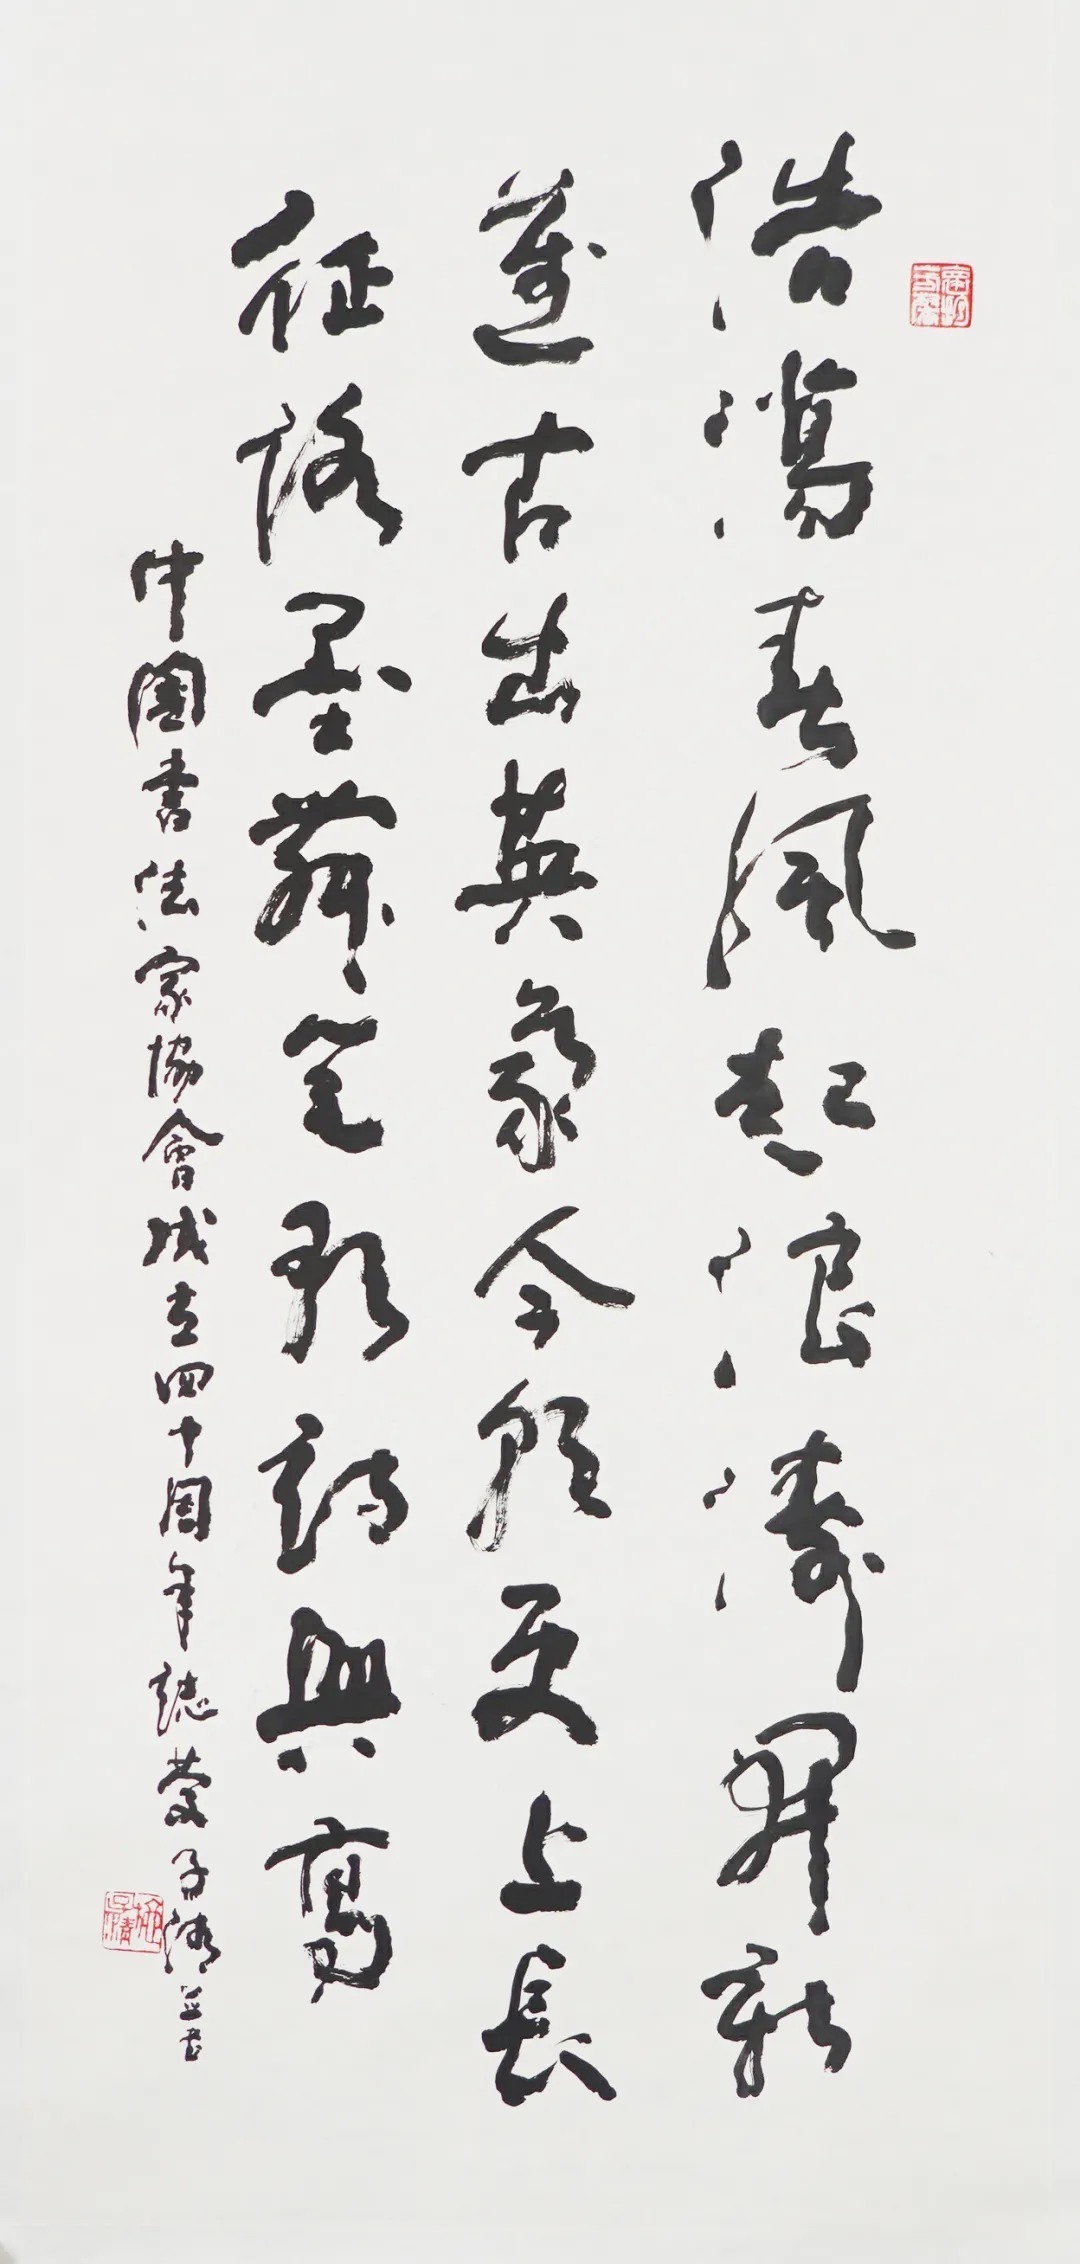 浩蕩春風起浪濤開新
邁古出英豪今朝更上長
征路墨舞筆歌詩興高
中國書法家協會成立四十周年誌慶子清並書